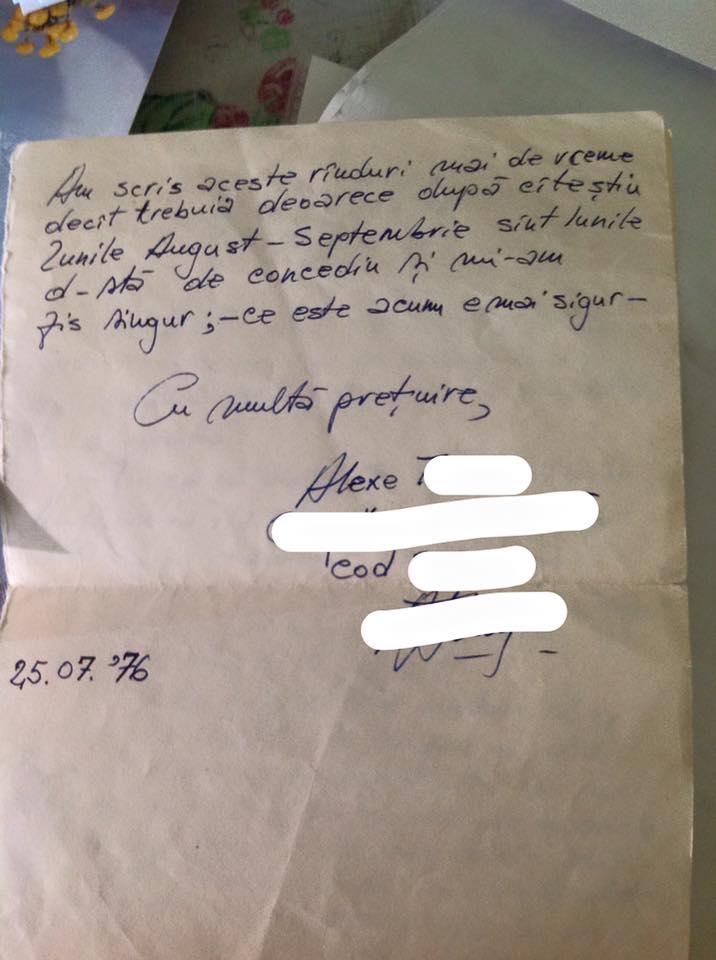 Am scris aceste rînduri mai de vreme
decît trebuia deoarece după cîte știu
lunile August - Septembrie sînt lunile
d-stă de concediu și mi-am
zis singur ; - ce este acum e mai sigur -
Cu multă prețuire,
Alexe
cod
25.07.'76